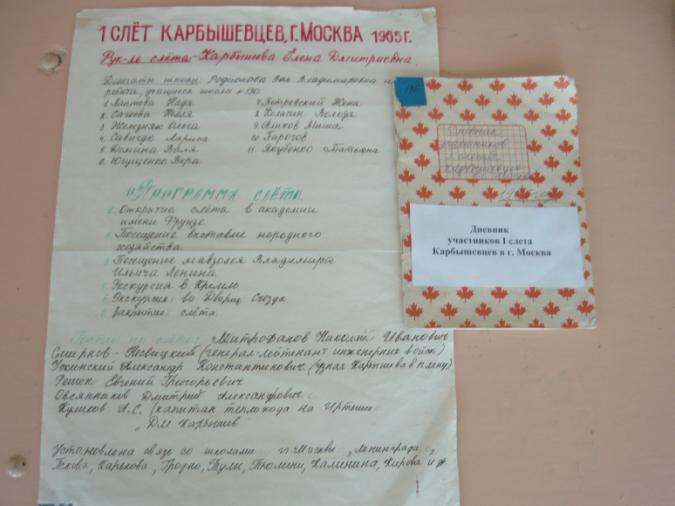 1 СЛЁТ КАРБЫШЕВЦЕВ, Г. МОСКВА 1965 г.
Рук-ль слёта - Карбышева Елена Дмитриевна.
Делегаты школы: Родионова Владимировна и
ребята, учащиеся школы № 90.
1. Аитова Надя
2. Сачева
3. Ольга
4. Савицкая Лариса
5. Домнина Валя
6. Ющущенко Вера
7. Петровский Жека
8. Володя
9. Миша
10. Пирогов
11. Якубенко Татьяна
ПРОГРАММА СЛЁТА.
Открытие слёта в академии
имени Фрунзе
Посещение выставки народного
хозяйства
Посещение мавзолея Владимира
Ильича Ленина
Экскурсия в Кремль
Экскурсия во Дворец Съезда
Закрытие слёта.
Гости на слёте: Митрофанов Николай Иванович
Смирнов-Несвицкий (генерал-лейтенант инженерных войск)
Александр Константинович (узнал Карбышева в плену)
Решек Евгений Григорьевич
Овсянников Дмитрий Александрович
Куликов А.С. (капитан теплохода на Иртыше
"ДМ Карбышев
Установлена связь со школами г. Москвы, Ленинграда,
Пскова, Харькова, Гродно, Тулы, Тюмени, Калинина, Кирова и
Дневник
участников
I слёта
Карбышевцев
1965 год
Дневник
участников I слета
Карбышевцев в г. Москва